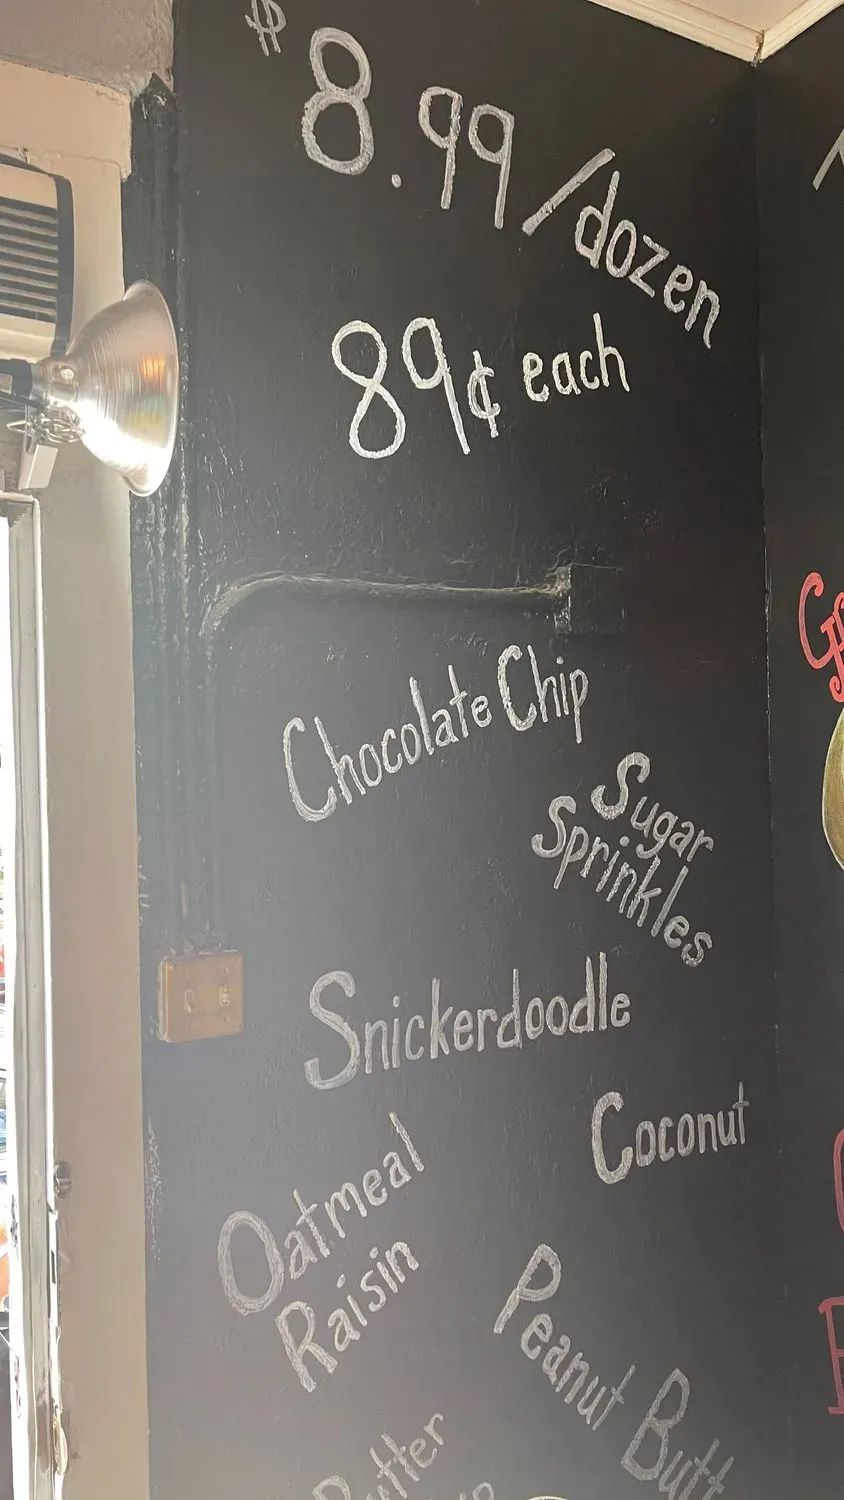 $8.99/dozen
89¢ each
Chocolate Chip
Sugar
Sprinkles
Snickerdoodle
Coconut
Oatmeal
Raisin
Peanut Butt